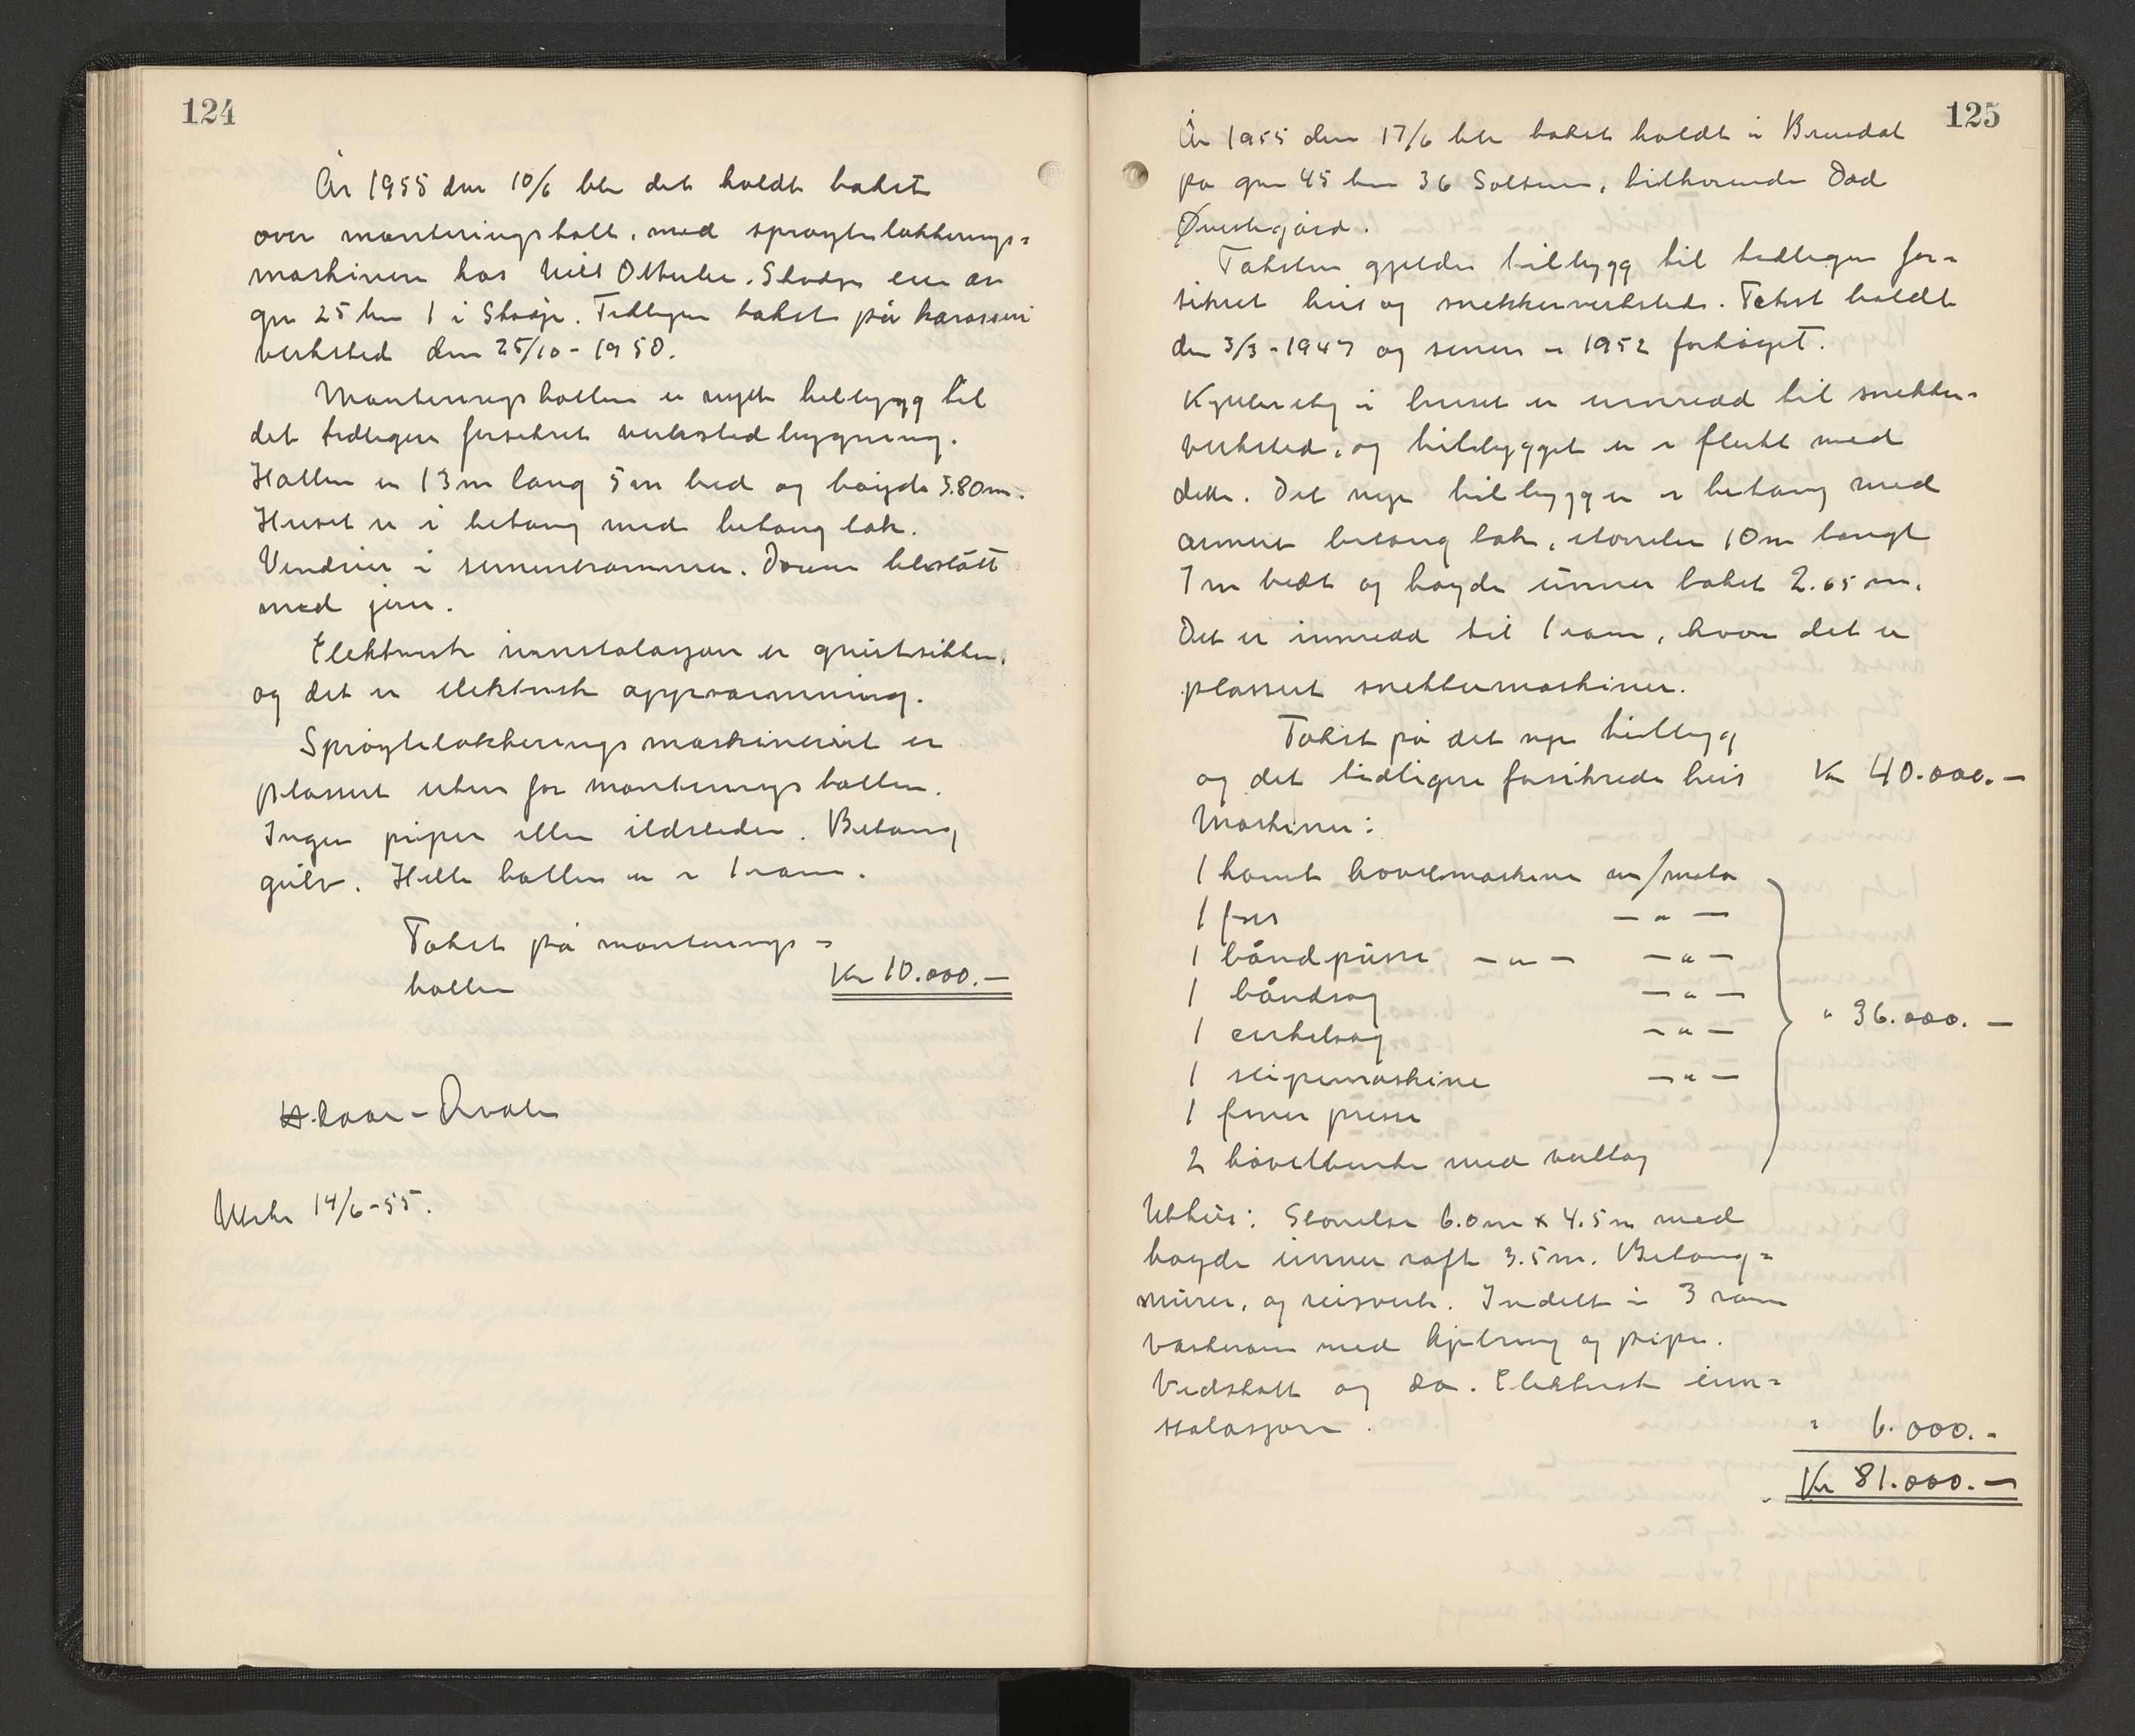 124
År 1955 den 10/6 ble det holdt takst
over monteringshall, med sprøytelakkerings-
maskineri hos Nils Otterlei. Skodje eier av
gnr 25 bnr 1 i Skodje. Tidligere takst på karosseri
verksted den 25/10 - 1950.
Monteringshallen er nytt tilbygg til
det tidligere forsikret verkstedbygning.
Hallen er 13 m lang 5 m bred og høyde 3.80 m.
Huset er i betong med betong tak.
Vinduer i sementrammer. Dører beslått
med jern.
Elektrisk innstalasjon er gnistsikker,
og det er elektrisk oppvarmning.
Sprøytelakkerings maskineriet er
plassert uten for monterings hallen.
Ingen piper eller ildsteder. Betong
gulv. Hele hallen er i 1 rom.
Takst på monterings-
hallen Kr 10.000.-
Utskr 14/6-55.
125
År 1955 den 17/6 ble takst holdt i Brusdal
på gnr 45 bnr 36 Solstun, tilhørende Odd
Øvrelsgård.
Taksten gjelder tilbygg til tidligere for-
sikret hus og snekkerverksted. Takst holdt
den 3/3-1947 og senere i 1952 forhøyet.
Kjelleretg i huset er innredd til snekker-
verksted, og tilbygget er i flukt med
dette. Det nye tilbygg er i betong med
armert betong tak, størrelse 10 m langt
7 m bredt og høyde under taket 2.65 m.
Det er innredd til 1 rom, hvor det er
plassert snekkermaskiner.
Takst på det nye tilbygg
og det tidligere forsikrede hus Kr 40.000.-
Maskiner:
1 komb høvelmaskine m/motor
1 fres - " -
1 båndpusse - " - - " -
1 båndsag - " -
1 cirkelsag - " - " 36.000.-
1 slipemaskine - " -
1 finer presse
2 høvelbenker med verktøy
Uthus: Størrelse 6.0 m x 4.5 m med
høyde under raft 3.5 m. Betong-
murer, og reisverk. Inndelt i 3 rom
vaskerom med kjelring og pipe.
Vedskott og do. Elektrisk inn-
stalasjon. " 6.000.-
Kr 81.000.-